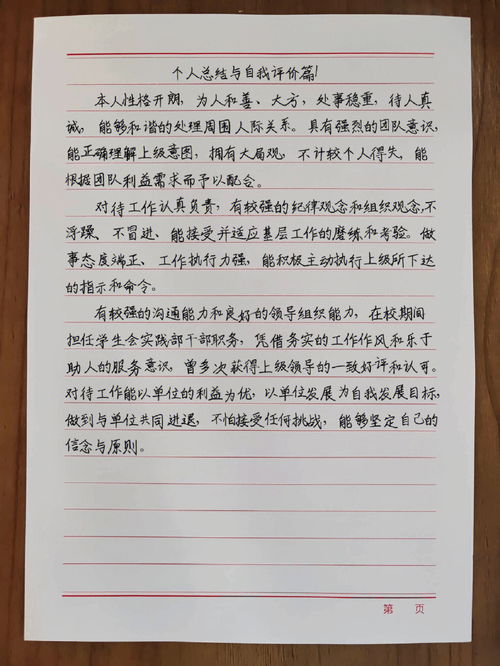 个人总结与自我评价篇!
本人性格开朗,为人和善、大方,处事稳重,待人真
诚,能够和谐的处理周围人际关系。具有强烈的团队意识,
能正确理解上级意图,拥有大局观,不计较个人得失,能
根据团队利益需求而予以配合。
对待工作认真负责,有较强的纪律观念和组织观念,不
浮躁、不冒进、能接受并适应基层工作的磨练和考验。做
事态度端正、工作执行力强,能积极主动执行上级所下达
的指示和命令。
有较强的沟通能力和良好的领导组织能力,在校期间
担任学生会实践部干部职务,凭借务实的工作作风和乐于
助人的服务意识,曾多次获得上级领导的一致好评和认可。
对待工作能以单位的利益为优,以单位发展为自我发展目标,
做到与单位共同进退,不怕接受任何挑战,能够坚定自己的
信念与原则。
第 页